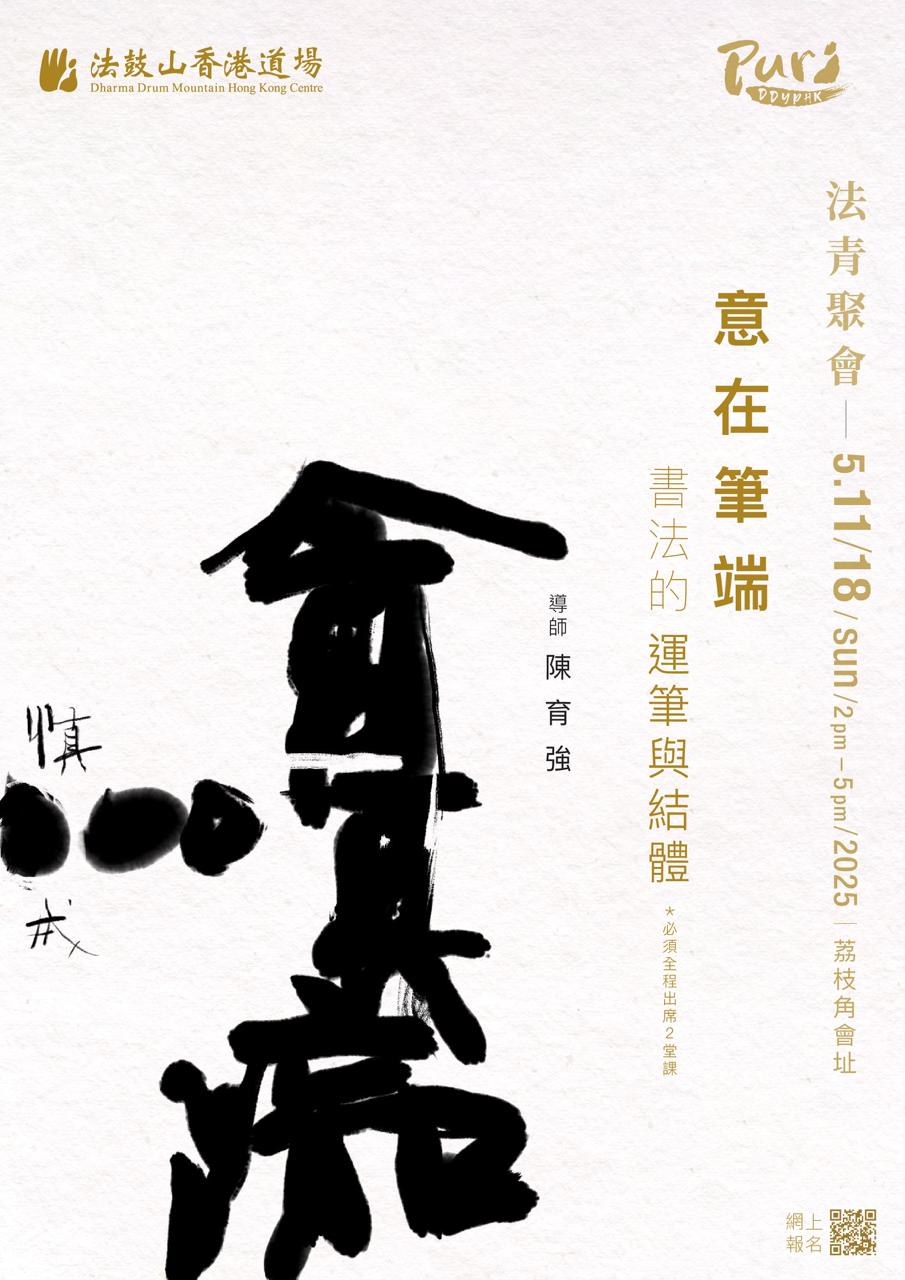 法鼓山香港道場
Dharma Drum Mountain Hong Kong Centre
Puri
DDYPHK
法青聚會 — 5.11/18/sun/2pm – 5pm/2025 | 荔枝角會址
意在筆端
書法的運筆與結體
*必須全程出席2堂課
導師 陳育強
慎
戒
網上
報名